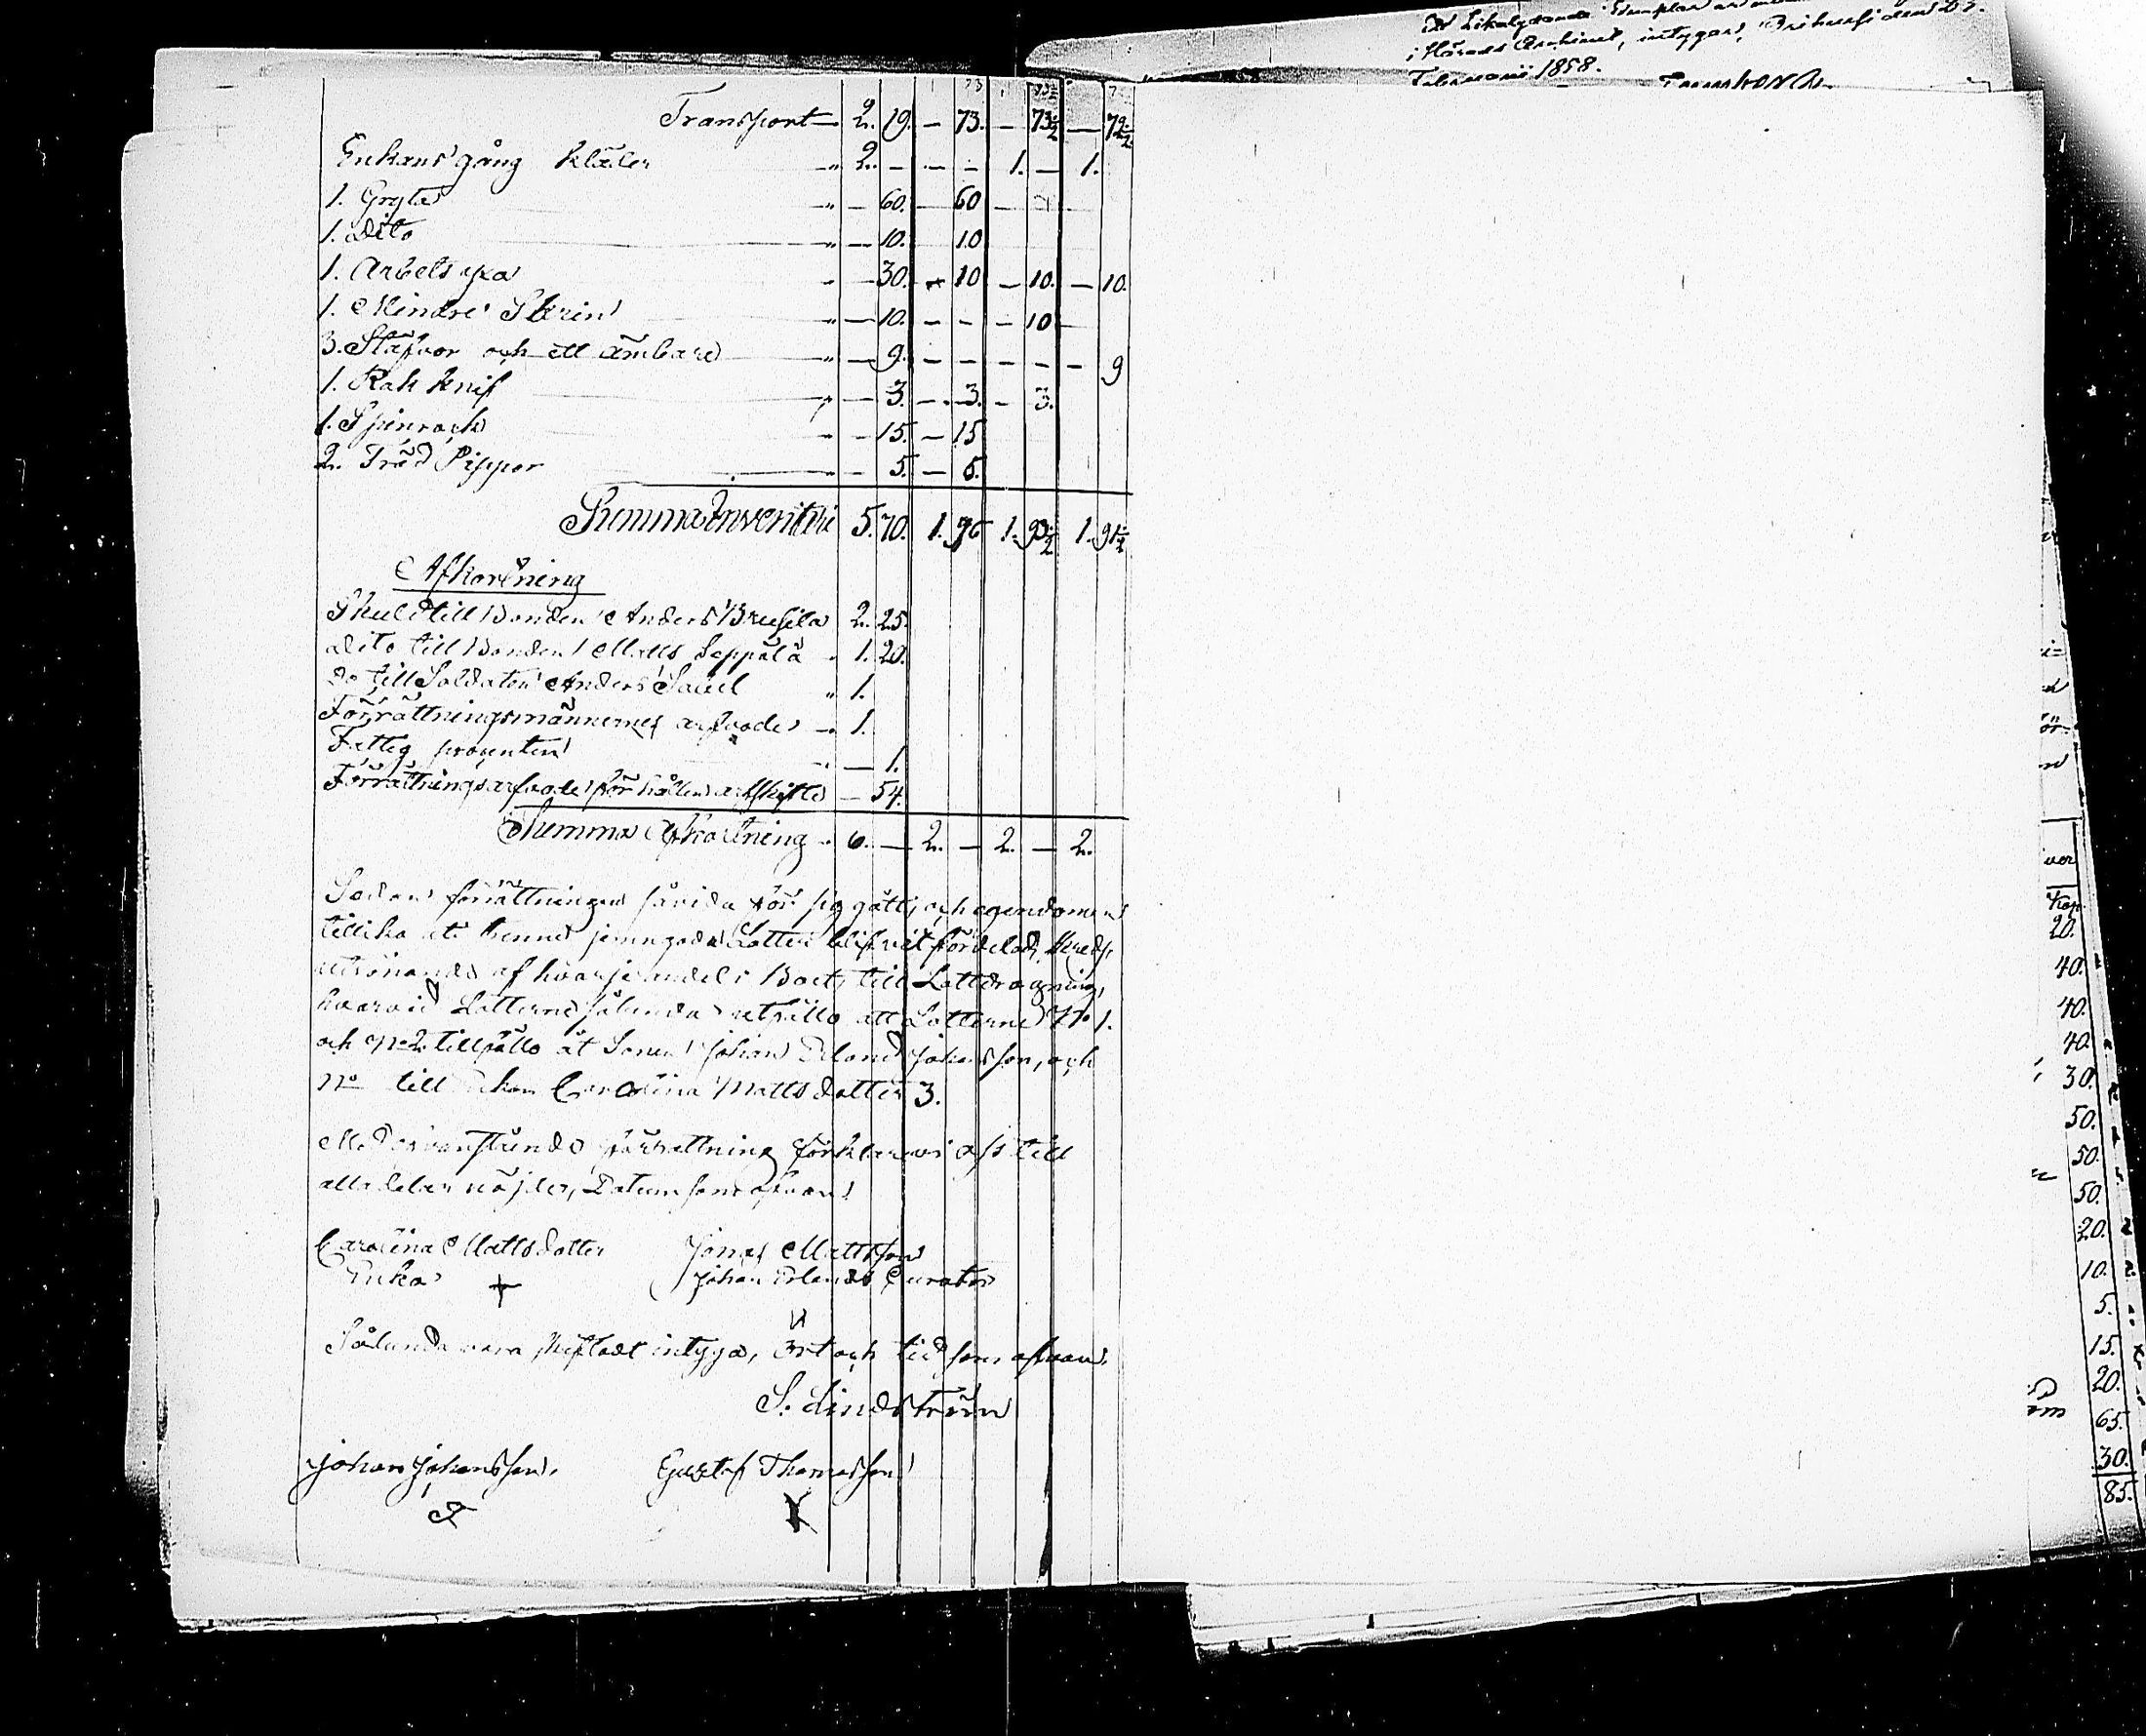 Ett Likalydande Exemplar
i Härads Archivet, intygar,
Februarii 1858.
Transport 2. 19. — 73. — 73½ — 72½
Enkans gång kläder " 2. — — — 1. — 1.
1. Gryta " — 60. — 60 —
1. Dito " — 10. 10
1. Arbets yxa " — 30. — 10 — 10. — 10.
1. Mindre Skrin " — 10. — — — 10 —
3. Stäfvor och ett ämbare " — 9. — — — — — 9
1. Rak knif " — 3. — 3. — 3.
1. Spinrock " — 15. — 15
2. Träd Pippor — 5. — 5.
Summa Inventarii 5. 70. 1. 96 1. 93½ 1. 91½
Afkortning
Skuld till Bonden Anders Brusila 2. 25.
Dito till Bonden Matts Seppälä " 1. 20.
Do till Soldaten Anders " 1.
Förrättningsmännernes arfvode " 1.
Fattig procenten — 1.
Förrättningsarfvode för hållen arfskifte — 54.
Summa Afkortning " 6. — 2. — 2. — 2.
Sedan förrättningen såvida för sig gått, och egendomen
tillika i jemngoda Lotter blifvit fördelad,
af hvarje andel i Boet, till Lottdragning,
hvarvid Lotterne sålunda utföllo att Lotterne No 1.
och No 2 tillföllo åt Sonen Johan Erland Johansson, och
No till Enkan Carolina Mattsdotter 3.
Med ofvanstående förrättning förklara vi oss till
alla delar nöjder, Datum som ofvan.
Carolina Mattsdotter Jonas Mattsson
Enka + Johan Erlands Curator
Sålunda vara skiftadt intyga, Ort och tid som ofvan.
S. Lindström
Johan Johansson. Gustaf Thomasson
ver
Kop.
20.
40.
40.
40.
30.
50.
50.
50.
20.
10.
5.
15.
20.
65.
30.
85.